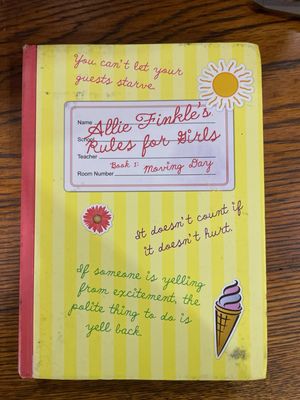 You can't let your
guests starve.
Name
Allie Finkle's
School
Rules for Girls
Teacher
Book 1: Moving Day
Room Number
It doesn't count if
it doesn't hurt.
If someone is yelling
from excitement, the
polite thing to do is
yell back.